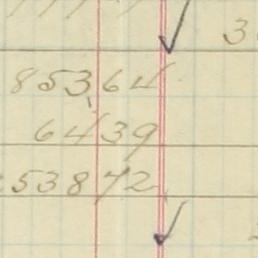 3
853 64
64 39
53872